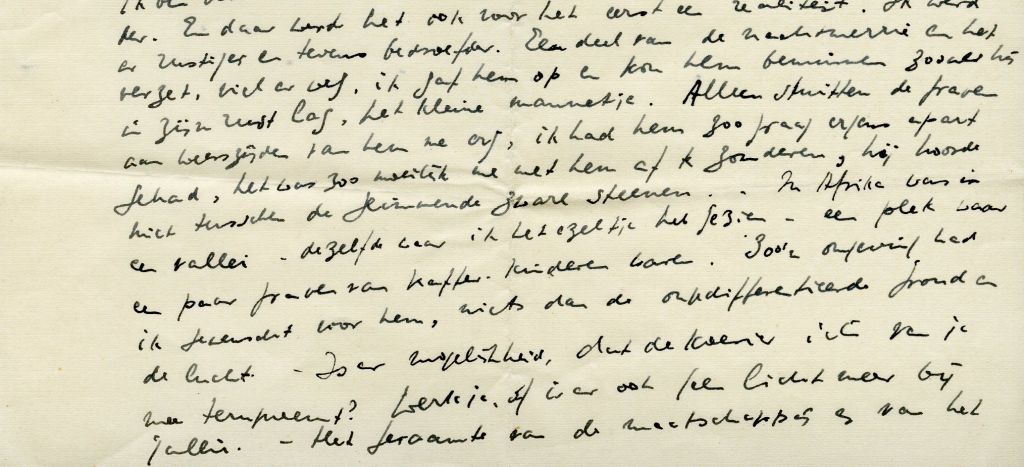 der. En daar werd het ook voor het eerst een realiteit. Ik werd
er rustiger en tevens bedroefder. Een deel van de nachtmerrie en het
verzet, viel er weg, ik gaf hem op en kon hem beminnen zooals hij
in zijn rust lag, het kleine mannetje. Alleen stuitten de graven
aan weerszijden van hem me erg, ik had hem zoo graag ergens apart
gehad, het was zoo moeilijk me met hem af te zonderen, hij hoorde
niet tusschen de zware steenen. - In Afrika was in
een vallei - dezelfde waar ik het ezeltje heb gezien - een plek waar
een paar graven van kaffer-kinderen waren. Zoo'n omgeving had
ik gewenscht voor hem, niets dan de ongedifferentieerde grond en
de lucht. - Is er mogelijkheid, dat de koerier iets van je
mee terugneemt? Werk je, of is er ook geen licht meer bij
jullie. - Het geraamte van de maatschappij is van het